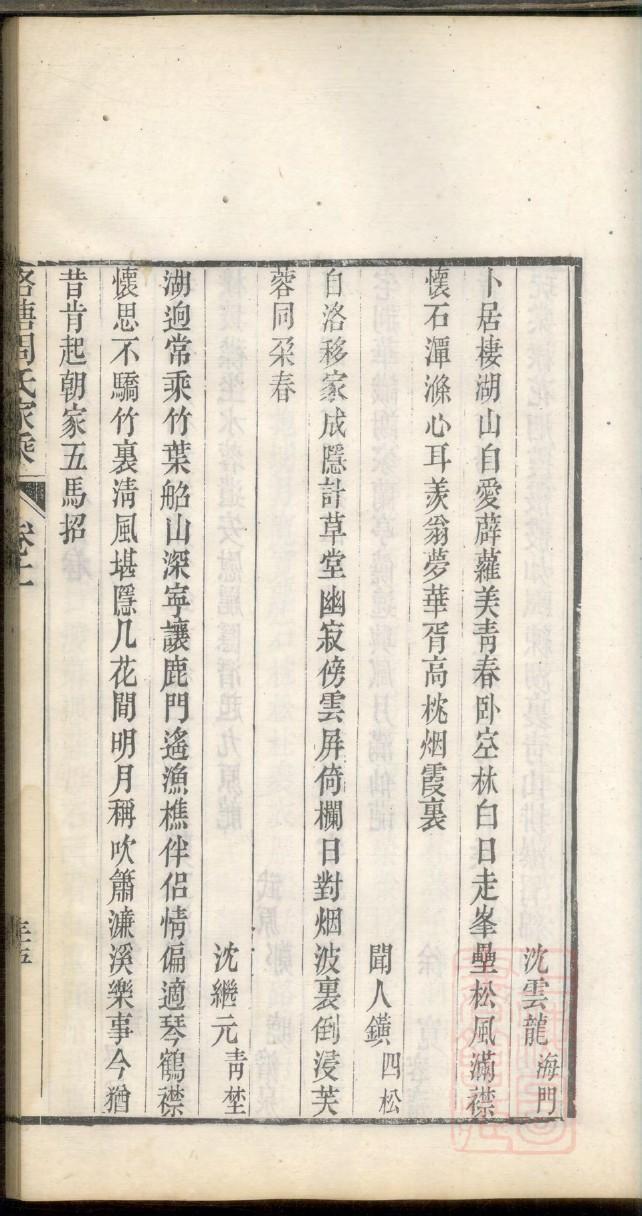 沈雲龍 海門
卜居棲湖山自愛薜蘿美靑春卧空林白日走峯壘松風滿襟
懷石潭滌心耳羨翁夢華胥高枕烟霞裏
聞人鐄 四松
自洛移家成隱計草堂幽寂傍雲屏倚欄日對烟波裏倒浸芙
蓉同朶春
沈繼元 靑埜
湖逈常乘竹葉舩山深寜讓鹿門遙漁樵伴侶情偏適琴鶴襟
懷思不驕竹裏淸風堪隱几花間明月稱吹簫濂溪樂事今猶
昔肯起朝家五馬招
周氏家乘 卷十一 三五